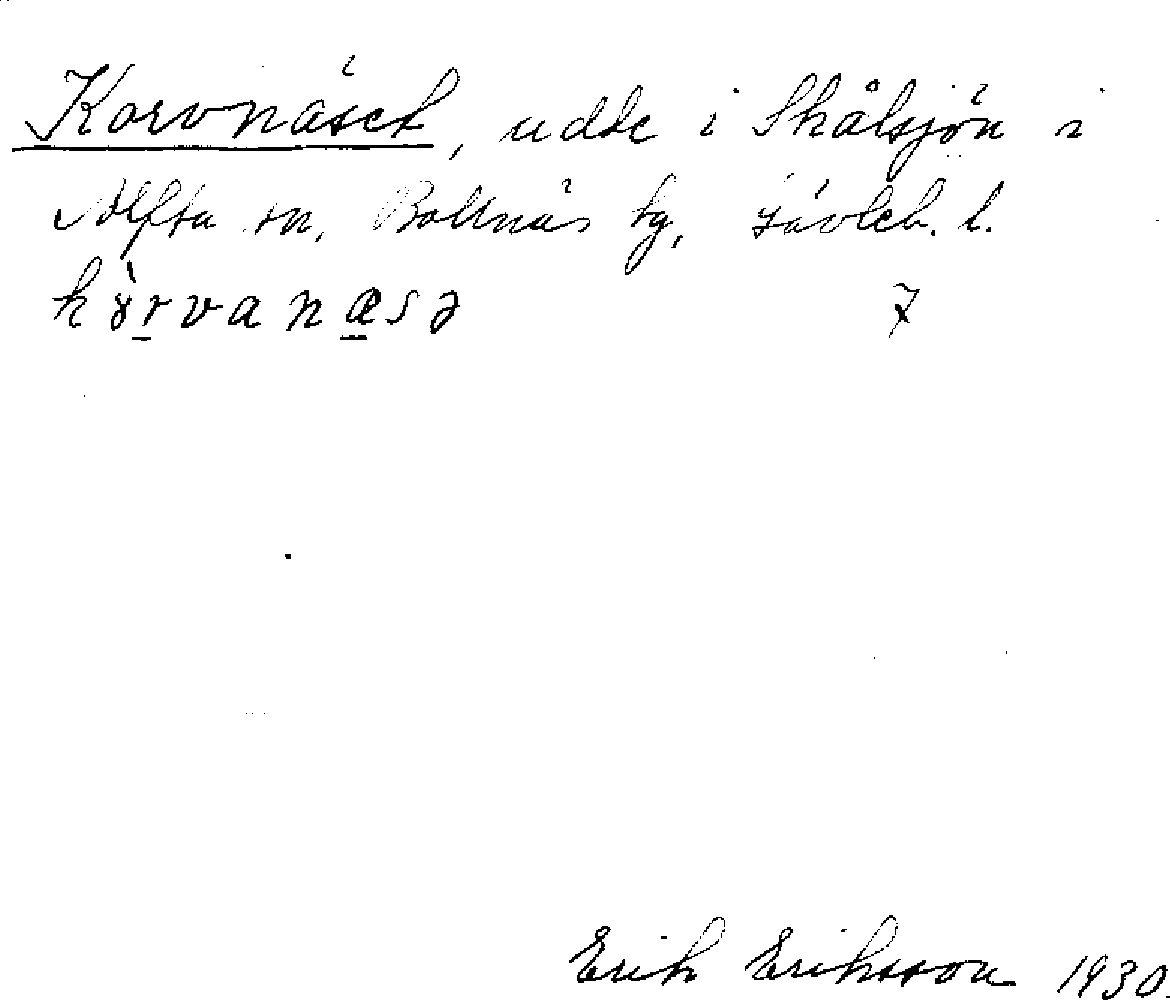 Korvnäset, udde i Skålsjön i
Alfta sn, Bollnäs tg, Gävleb. l.
kɤ̀rvanæsə 7
Erik Eriksson 1930.